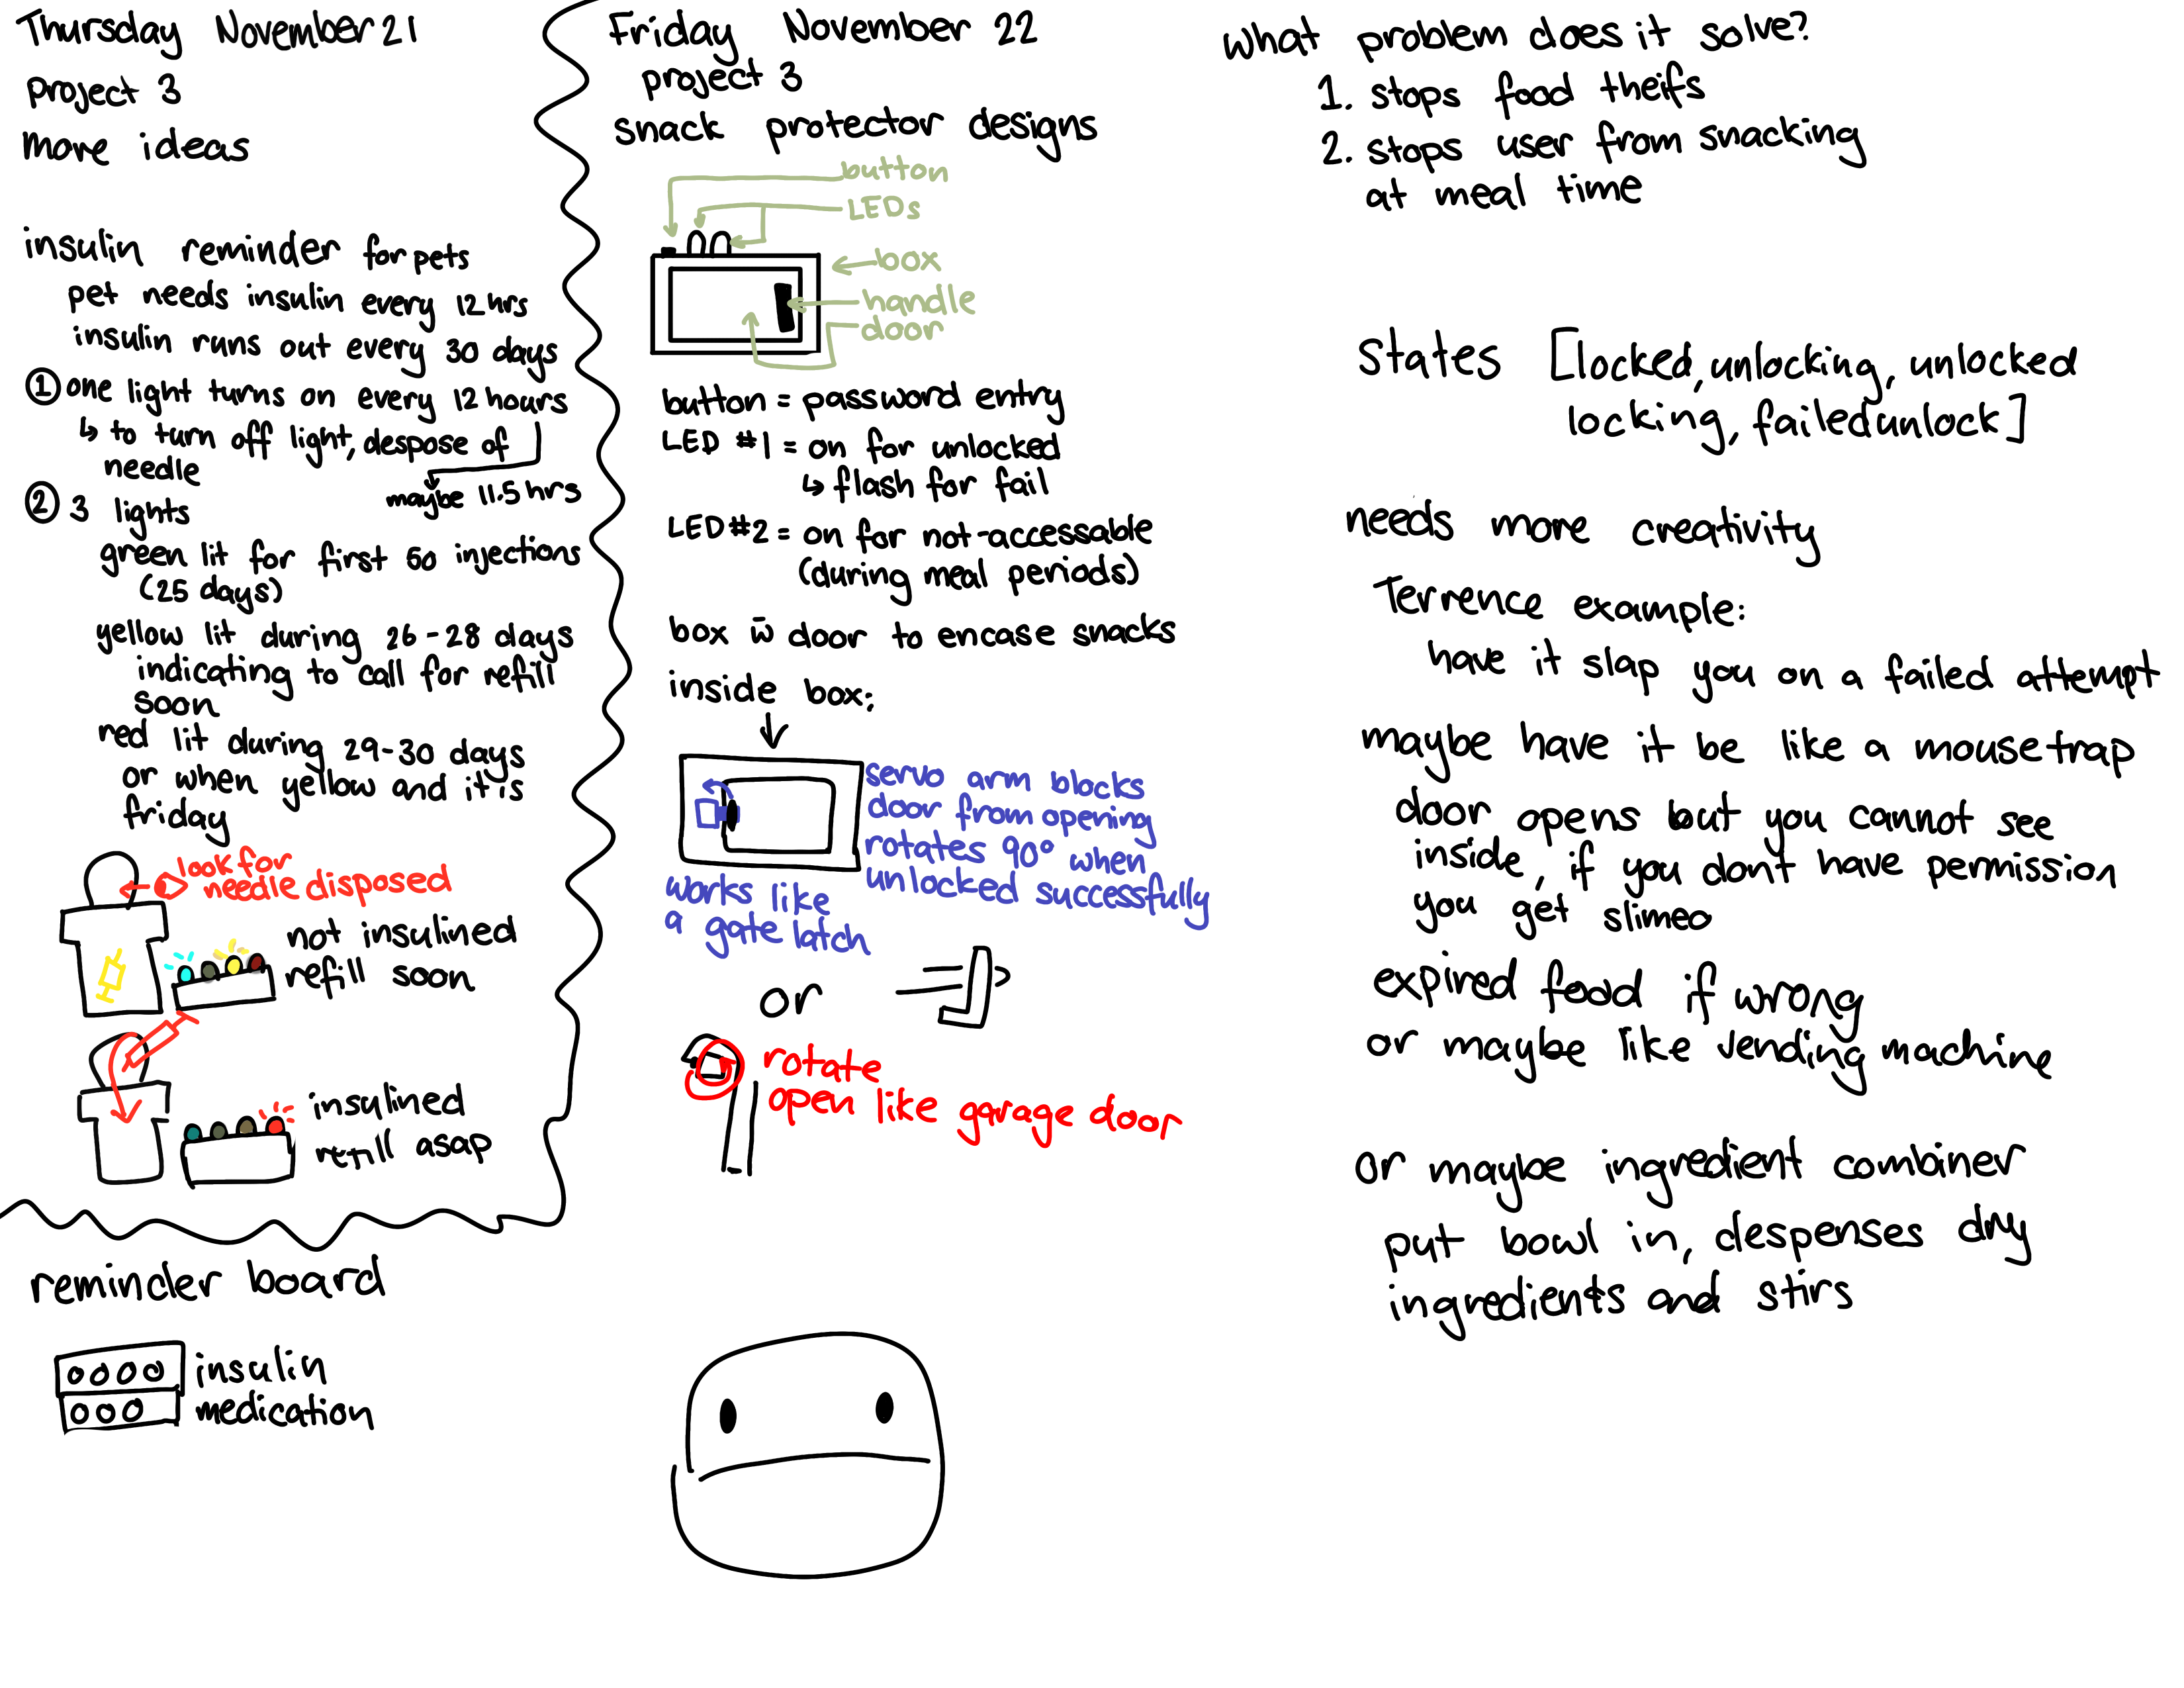 Thursday November 21
project 3
more ideas
insulin reminder for pets
pet needs insulin every 12 hrs
insulin runs out every 30 days
① one light turns on every 12 hours
↳ to turn off light, despose of
needle
maybe 11.5 hrs
② 3 lights
green lit for first 50 injections
(25 days)
yellow lit during 26-28 days
indicating to call for refill
soon
red lit during 29-30 days
or when yellow and it is
friday
look for
needle disposed
not insulined
refill soon
insulined
refill asap
reminder board
insulin
medication
Friday November 22
project 3
snack protector designs
button
LEDs
box
handle
door
button = password entry
LED #1 = on for unlocked
↳ flash for fail
LED #2 = on for not-accessable
(during meal periods)
box w̄ door to encase snacks
inside box:
servo arm blocks
door from opening
rotates 90° when
unlocked successfully
works like
a gate latch
or
rotate
open like garage door
what problem does it solve?
1. stops food theifs
2. stops user from snacking
at meal time
States [locked, unlocking, unlocked
locking, failedunlock]
needs more creativity
Terrence example:
have it slap you on a failed attempt
maybe have it be like a mousetrap
door opens but you cannot see
inside, if you dont have permission
you get slimed
expired food if wrong
or maybe like vending machine
or maybe ingredient combiner
put bowl in, despenses dry
ingredients and stirs